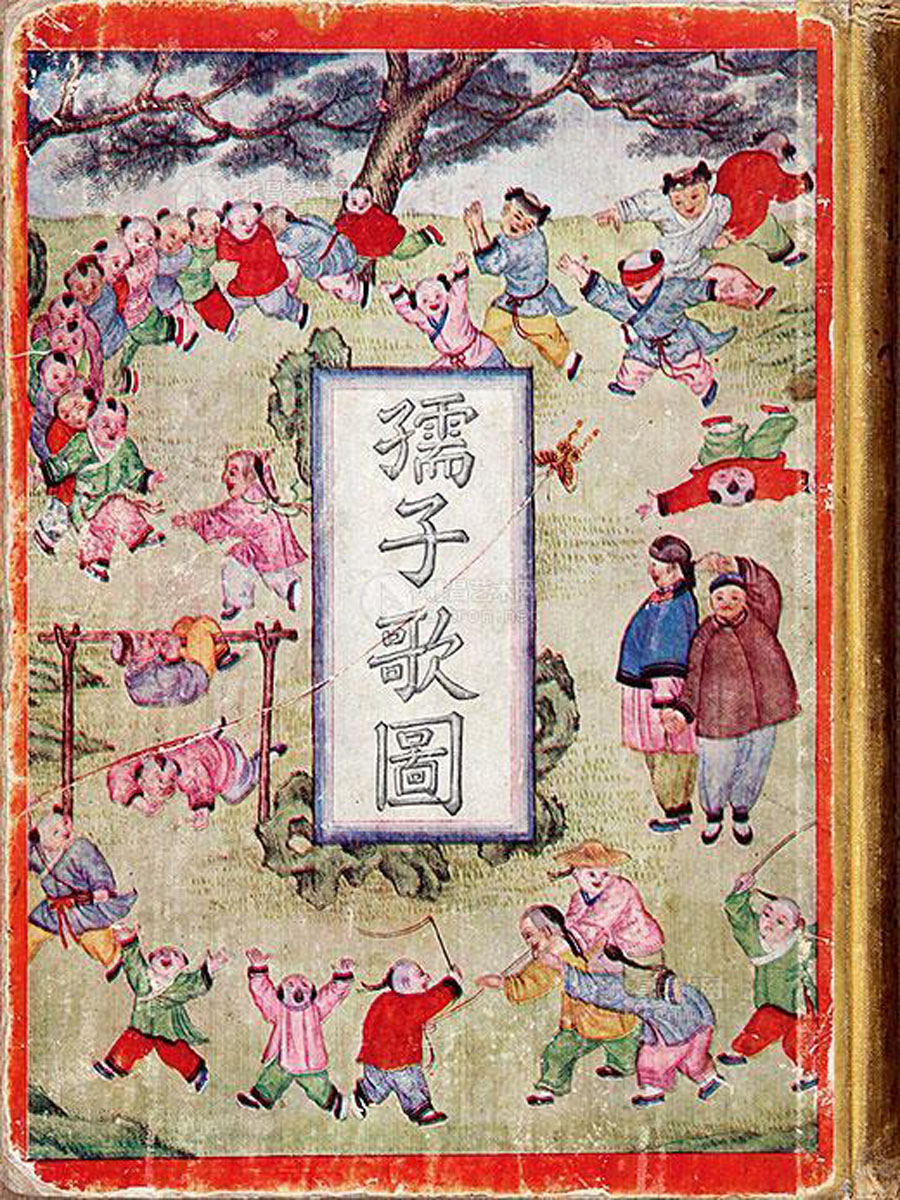 孺子歌圖